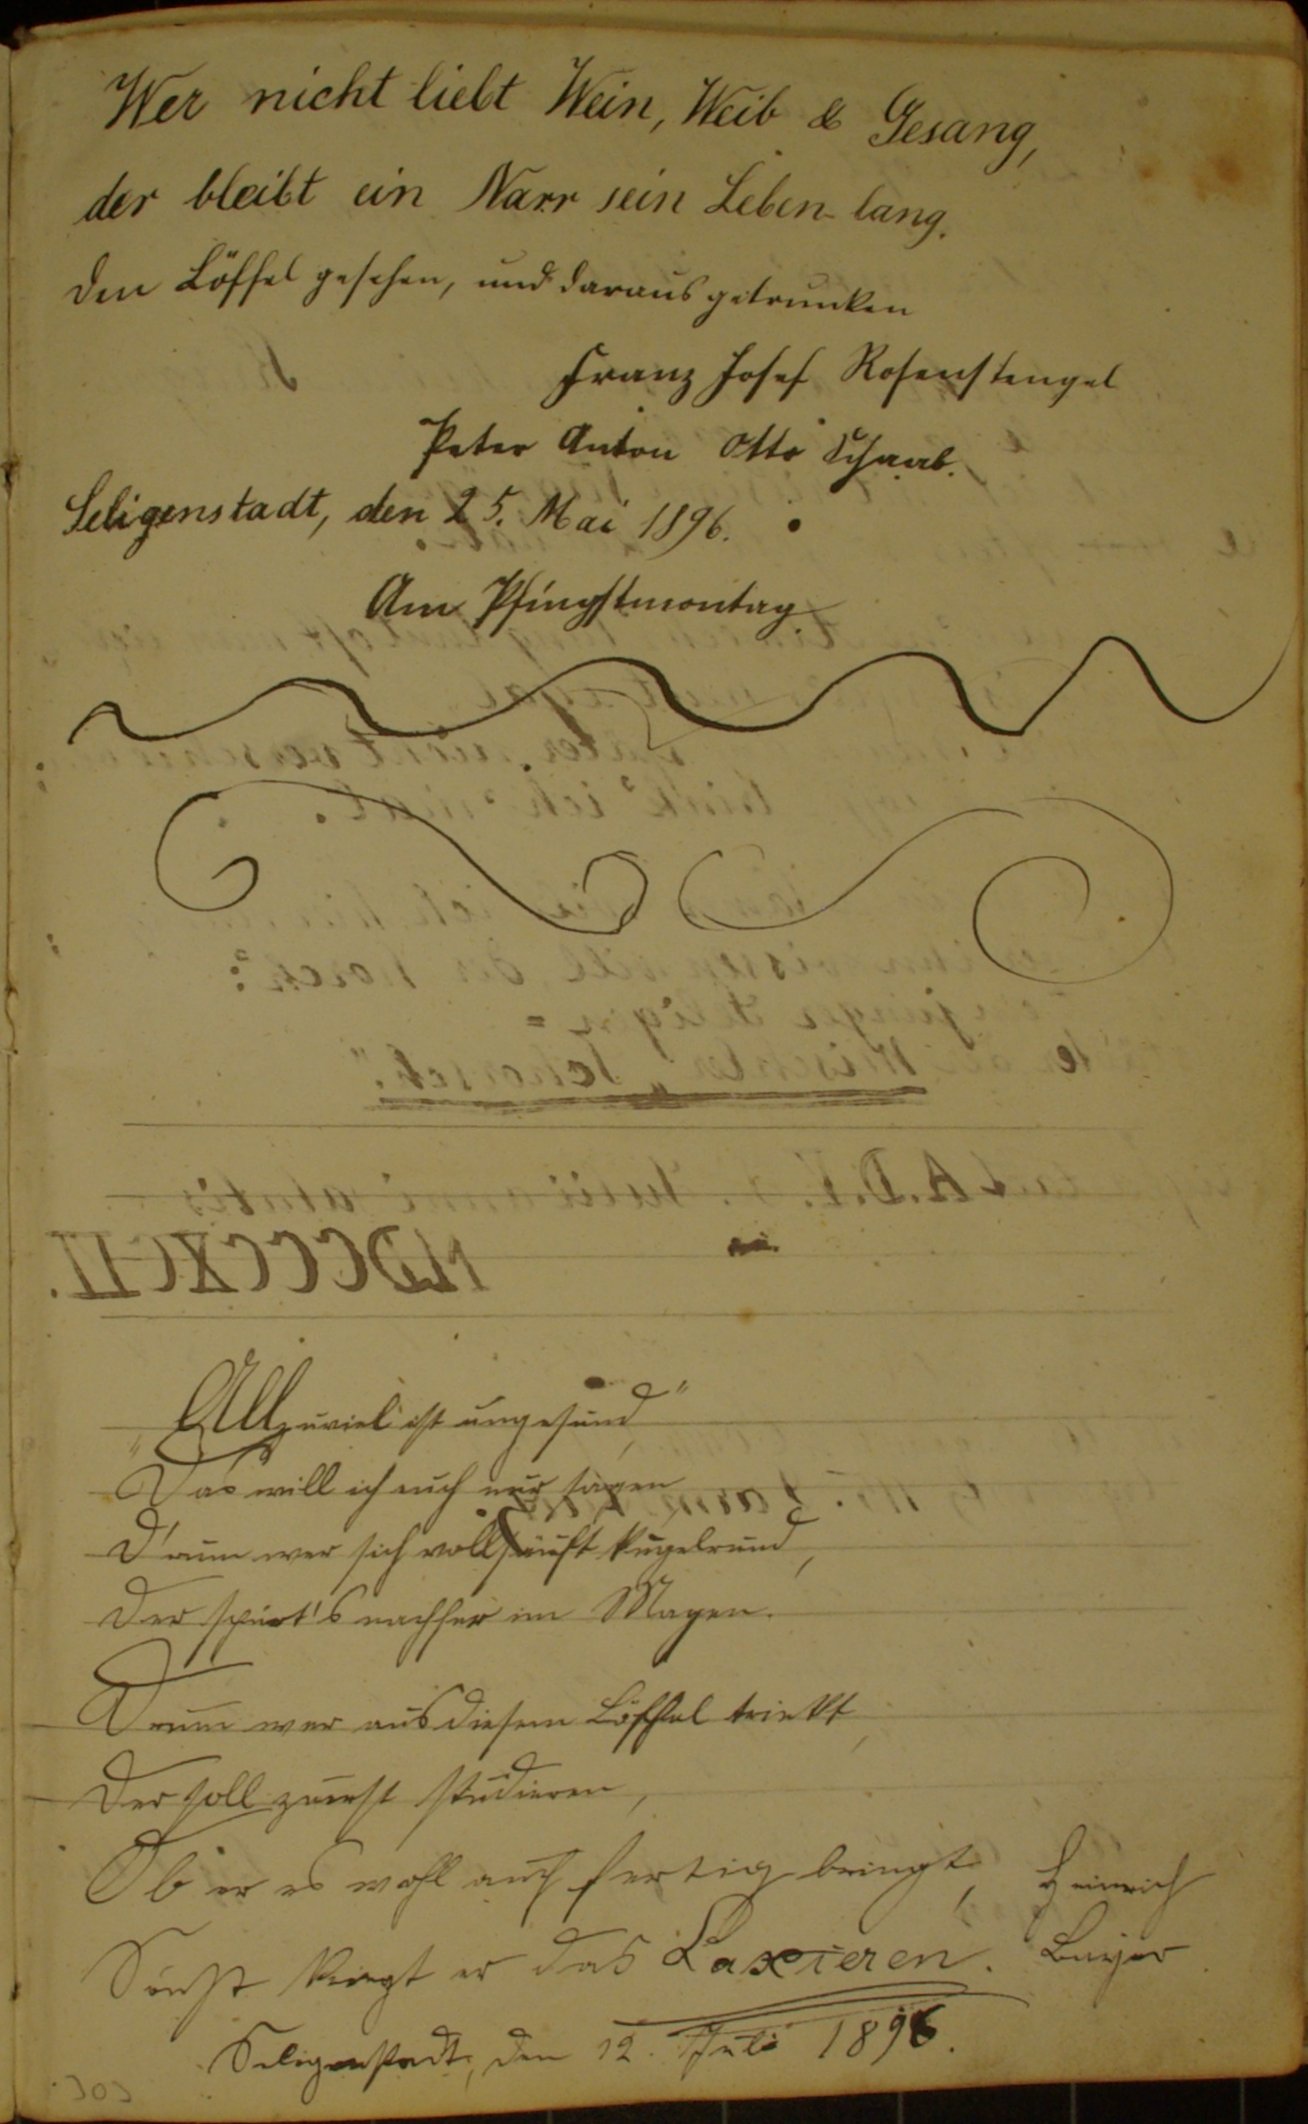 Wer nicht liebt Wein, Weib & Gesang,
der bleibt ein Narr sein Leben lang.
Den Löffel gesehen, und daraus getrunken
Franz Josef Rosenstengel
Peter Anton Otto Schaab.
Seligenstadt, den 25. Mai 1896.
Am Pfingstmontag
MDCCCXCII.
„Allzuviel ist ungesund"
Das will ich euch nur sagen
D'rum wer sich vollsäuft kugelrund,
Der spürt's nachher im Magen.
Drum wer aus diesem Löffel trinkt,
Der soll zuerst studieren,
Ob er es wohl auch fertig bringt,
Sonst kriegt er das Laxieren.
Heinrich
Beyer
Seligenstadt, den 12. Juli 1896.